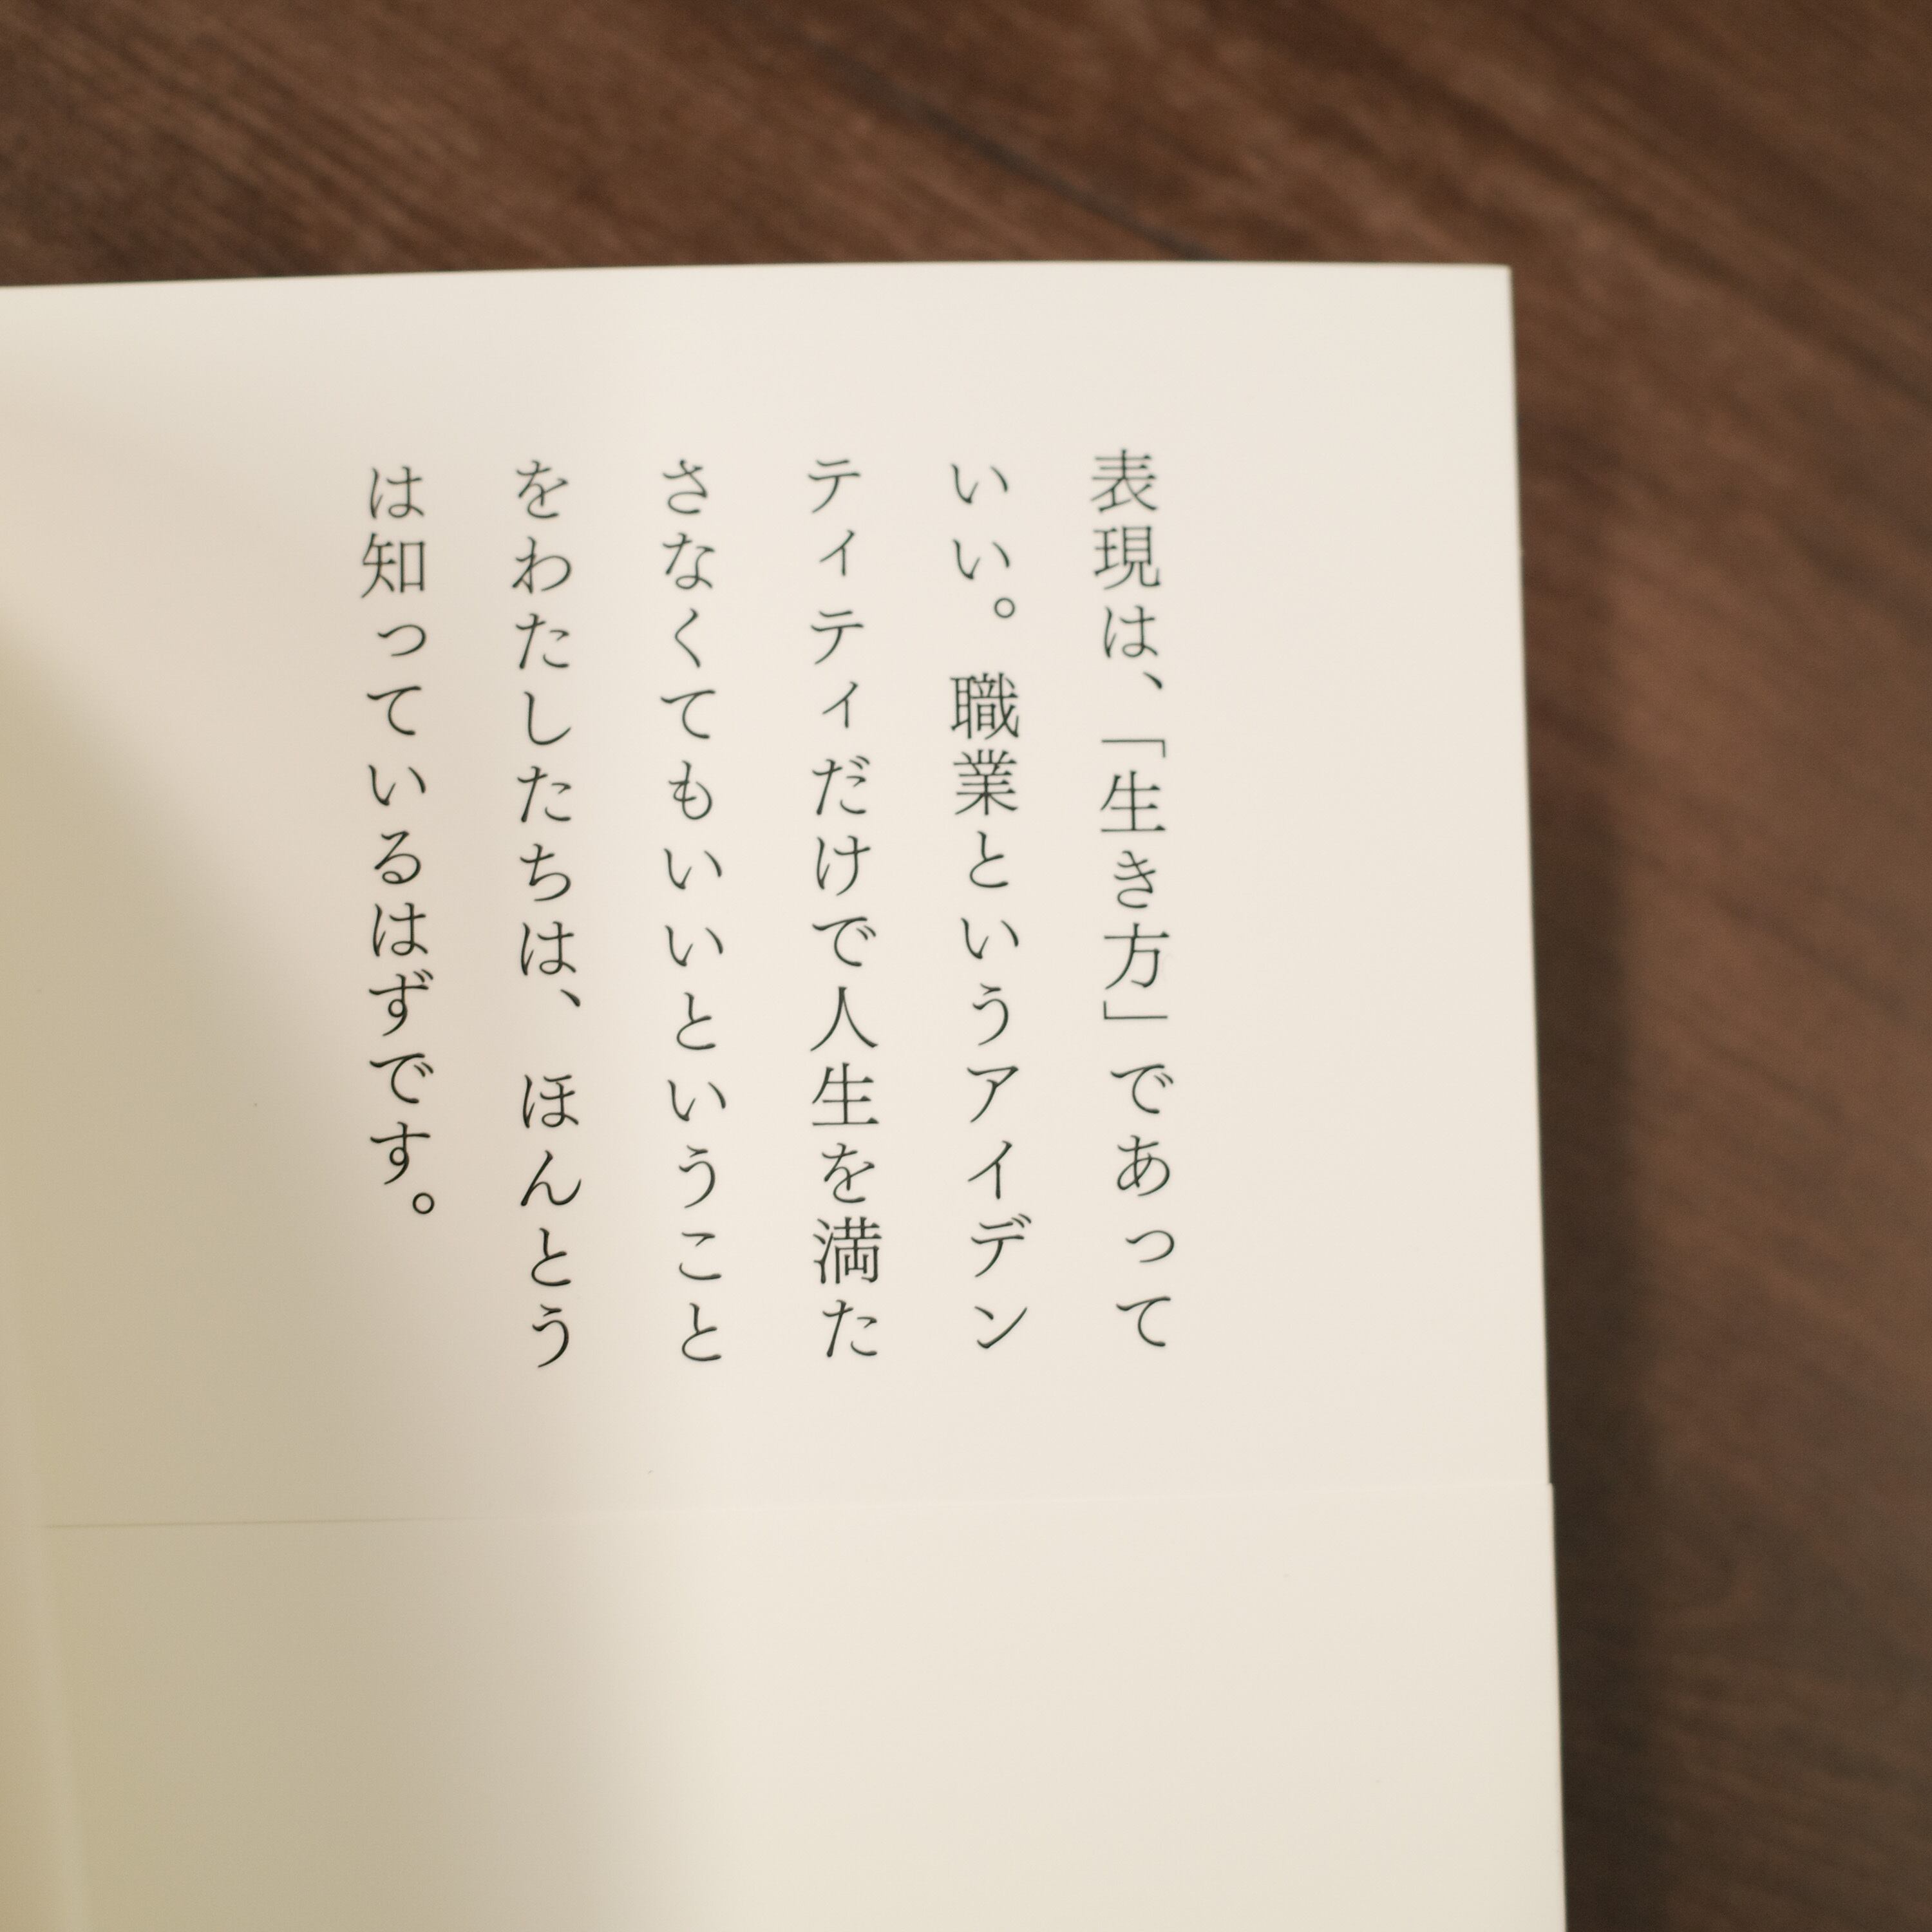 表現は、「生き方」であって
いい。職業というアイデン
ティティだけで人生を満た
さなくてもいいということ
をわたしたちは、ほんとう
は知っているはずです。